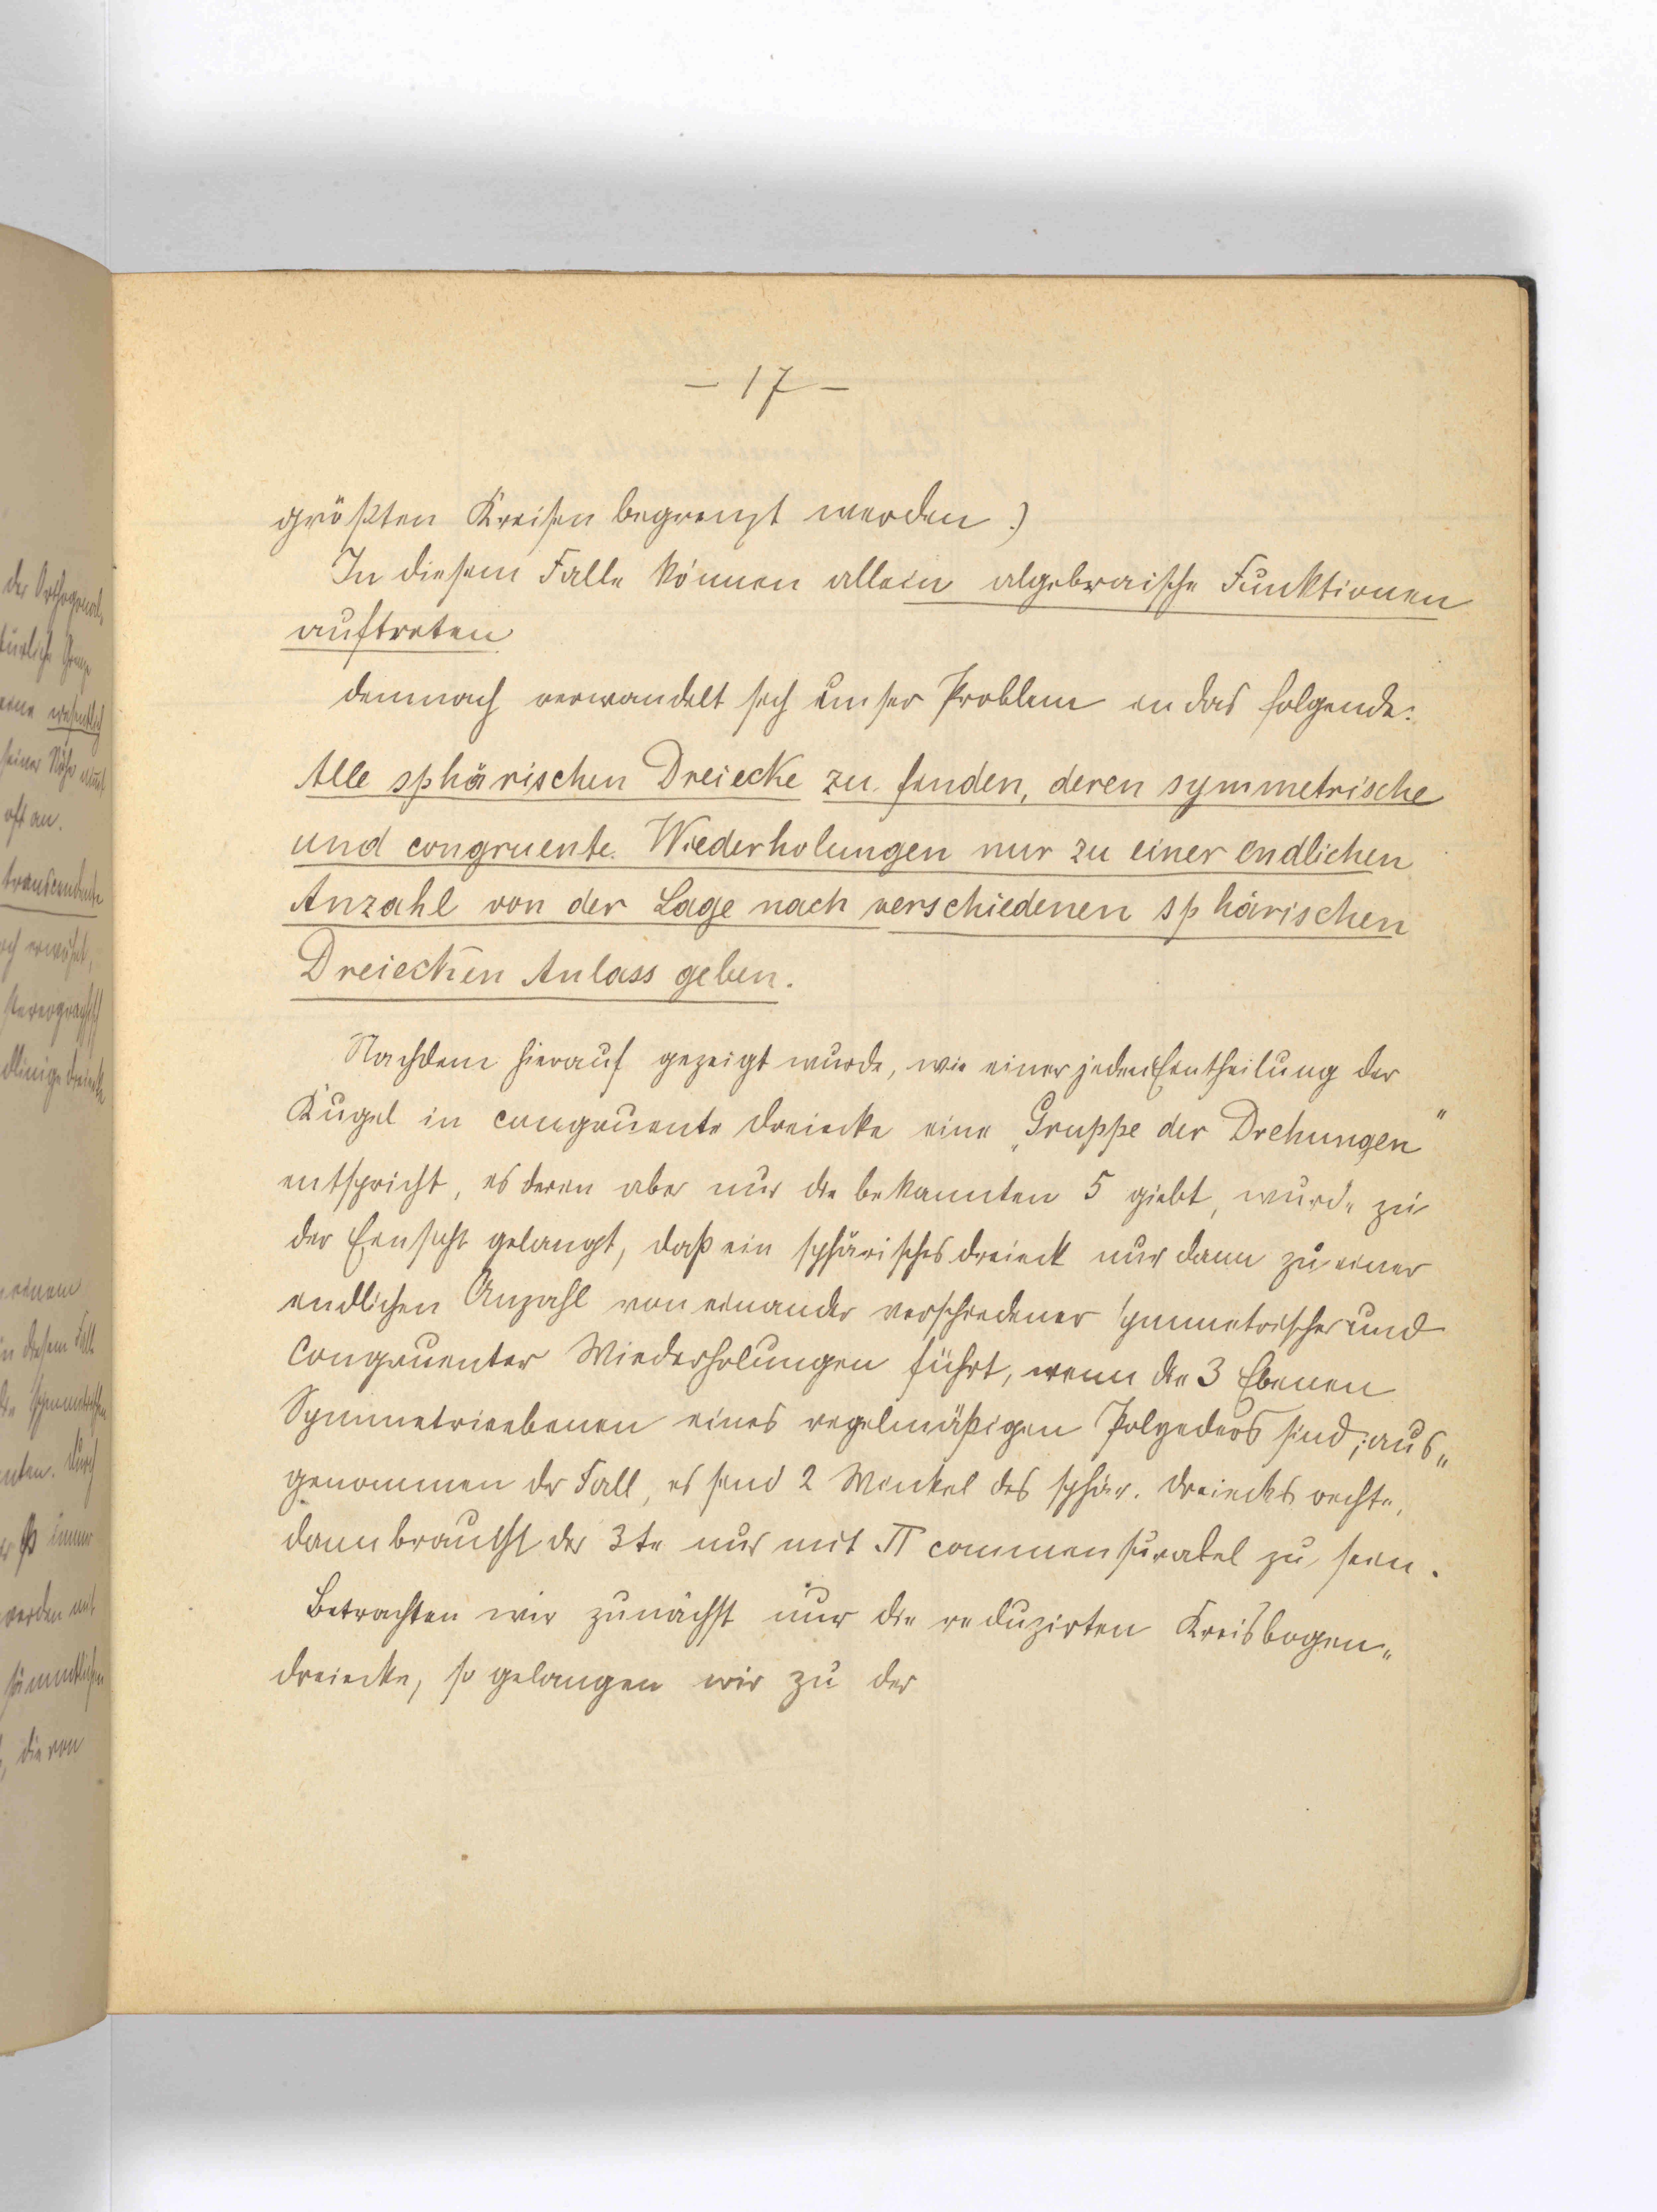 — 17 —
größten Kreisen begrenzt werden.)
In diesem Falle können allein algebraische Funktionen
auftreten
demnach verwandelt sich unser Problem in das folgende:
Alle sphärischen Dreiecke zu finden, deren symmetrische
und congruente Wiederholungen nur zu einer endlichen
Anzahl von der Lage nach verschiedenen sphärischen
Dreiecken Anlass geben.
Nachdem hierauf gezeigt wurde, wie einer jeden Eintheilung der
Kugel in congruente Dreiecke eine „Gruppe der Drehungen"
entspricht, es deren aber nur die bekannten 5 giebt, wurde zu
der Einsicht gelangt, daß ein sphärisches Dreieck nur dann zu einer
endlichen Anzahl von einander verschiedener symmetrischer und
congruenter Wiederholungen führt, wenn die 3 Ebenen
Symmetrieebenen eines regelmäßigen Polyeders sind; aus„
genommen der Fall, es sind 2 Winkel des sphär. Dreiecks rechte,
dann braucht der 3te nur mit π commensurabel zu sein.
Betrachten wir zunächst nur die reduzirten Kreisbogen„
dreiecke, so gelangen wir zu der
der Orthogonal
wesentlich
seiner Nähe
oft an.
transcendente
einem
in diesem Falle
die symmetrischen
Durch
immer
werden mit
sämmtlichen
die von